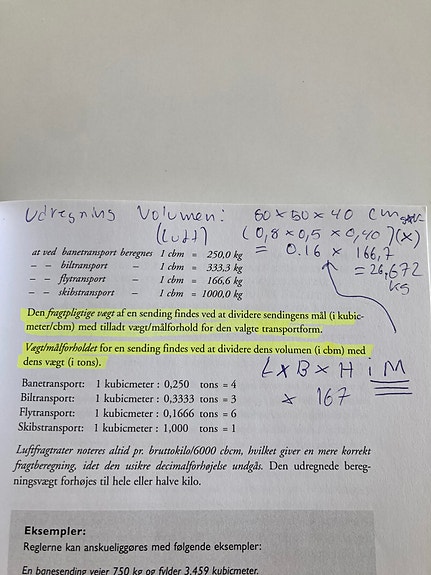 Udregning Volumen: 80 x 50 x 40 cm
(Luft) (0,8 x 0,5 x 0,40)(x)
= 0.16 x 166,7
= 26,672
kg
at ved banetransport beregnes 1 cbm = 250,0 kg
– – biltransport – 1 cbm = 333,3 kg
– – flytransport – 1 cbm = 166,6 kg
– – skibstransport – 1 cbm = 1000,0 kg
Den fragtpligtige vægt af en sending findes ved at dividere sendingens mål (i kubic-
meter/cbm) med tilladt vægt/målforhold for den valgte transportform.
Vægt/målforholdet for en sending findes ved at dividere dens volumen (i cbm) med
dens vægt (i tons).
L x B x H i M
x 167
Banetransport: 1 kubicmeter : 0,250 tons = 4
Biltransport: 1 kubicmeter : 0,3333 tons = 3
Flytransport: 1 kubicmeter : 0,1666 tons = 6
Skibstransport: 1 kubicmeter : 1,000 tons = 1
Luftfragtrater noteres altid pr. bruttokilo/6000 cbcm, hvilket giver en mere korrekt
fragtberegning, idet den usikre decimalforhøjelse undgås. Den udregnede bereg-
ningsvægt forhøjes til hele eller halve kilo.
Eksempler:
Reglerne kan anskueliggøres med følgende eksempler:
En banesending vejer 750 kg og fylder 3,459 kubicmeter.